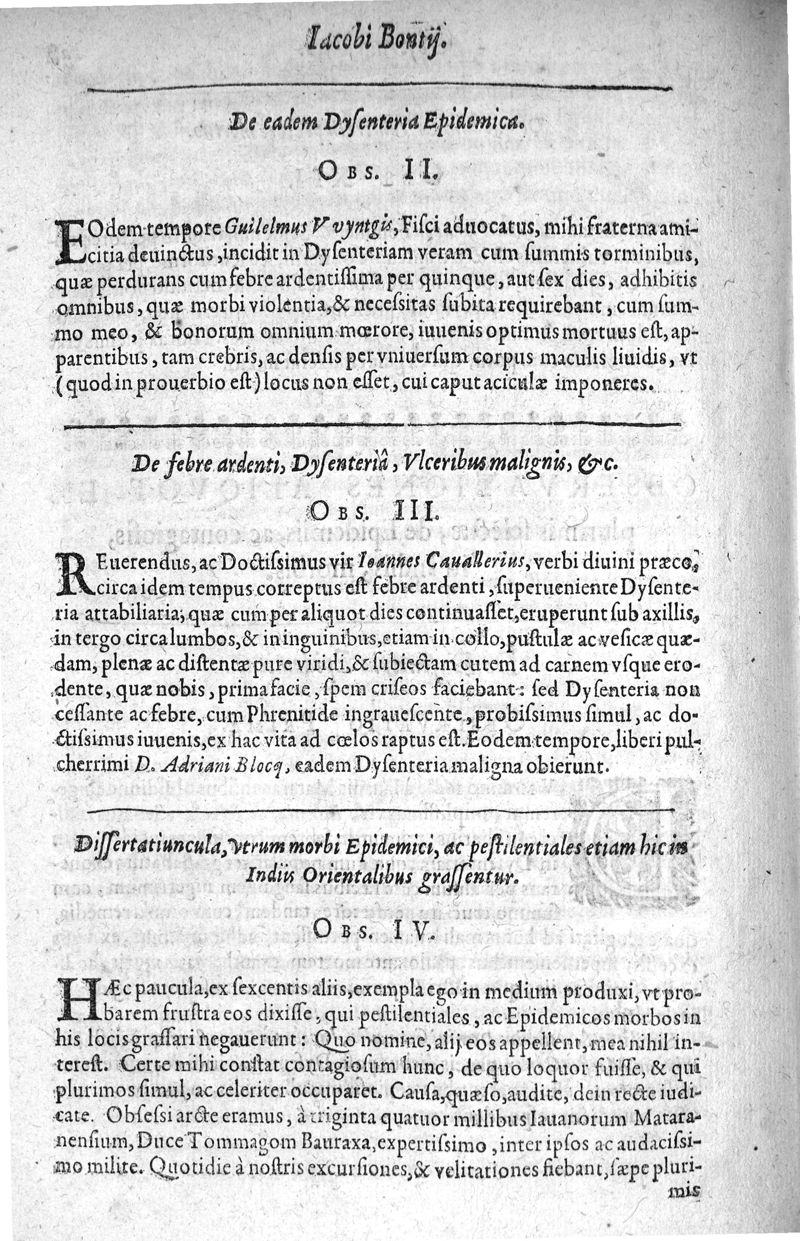 Iacobi Bontij.
De eadem Dyſenteria Epidemica.
OBS. II.
EOdem tempore Guilelmus Vvyntgis, Fiſci aduocatus, mihi fraterna ami-
citia deuinctus, incidit in Dyſenteriam veram cum ſummis torminibus,
quæ perdurans cum febre ardentiſſima per quinque, aut ſex dies, adhibitis
omnibus, quæ morbi violentia, & neceſſitas ſubita requirebant, cum ſum-
mo meo, & bonorum omnium mœrore, iuuenis optimus mortuus eſt, ap-
parentibus, tam crebris, ac denſis per vniuerſum corpus maculis liuidis, vt
(quod in prouerbio eſt) locus non eſſet, cui caput aciculæ imponeres.
De febre ardenti, Dyſenteriâ, Vlceribus malignis, &c.
OBS. III.
REuerendus, ac Doctiſſimus vir Ioannes Cauallerius, verbi diuini præco,
circa idem tempus correptus eſt febre ardenti, ſuperueniente Dyſente-
ria attabiliaria, quæ cum per aliquot dies continuaſſet, eruperunt ſub axillis,
in tergo circa lumbos, & in inguinibus, etiam in collo, puſtulæ ac veſicæ quæ-
dam, plenæ ac diſtentæ pure viridi, & ſubiectam cutem ad carnem vſque ero-
dente, quæ nobis, prima facie, ſpem criſeos faciebant: ſed Dyſenteria non
ceſſante ac febre, cum Phrenitide ingraueſcente, probiſſimus ſimul, ac do-
ctiſſimus iuuenis, ex hac vita ad cœlos raptus eſt. Eodem tempore, liberi pul-
cherrimi D. Adriani Blocq, eadem Dyſenteria maligna obierunt.
Diſſertatiuncula, vtrum morbi Epidemici, ac peſtilentiales etiam hic in
Indiis Orientalibus graſſentur.
OBS. IV.
HÆc paucula, ex ſexcentis aliis, exempla ego in medium produxi, vt pro-
barem fruſtra eos dixiſſe, qui peſtilentiales, ac Epidemicos morbos in
his locis graſſari negauerunt: Quo nomine, alij eos appellent, mea nihil in-
tereſt. Certe mihi conſtat contagioſum hunc, de quo loquor fuiſſe, & qui
plurimos ſimul, ac celeriter occuparet. Cauſa, quæſo, audite, dein recte iudi-
cate. Obſeſſi arcte eramus, à triginta quatuor millibus Iauanorum Matara-
nenſium, Duce Tommagom Bauraxa, expertiſſimo, inter ipſos ac audaciſſi-
mo milite. Quotidie à noſtris excurſiones, & velitationes fiebant, ſæpe pluri-
mis